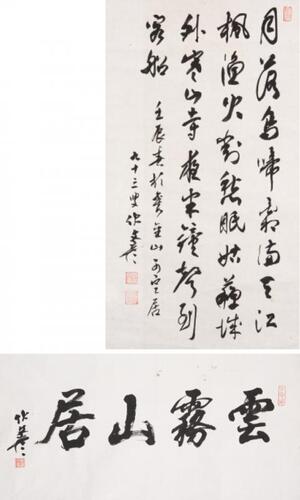 月落烏啼霜滿天江
楓漁火對愁眠姑蘇城
外寒山寺夜半鐘聲到
客船
壬辰春於山居
九十三叟
雲霧山居